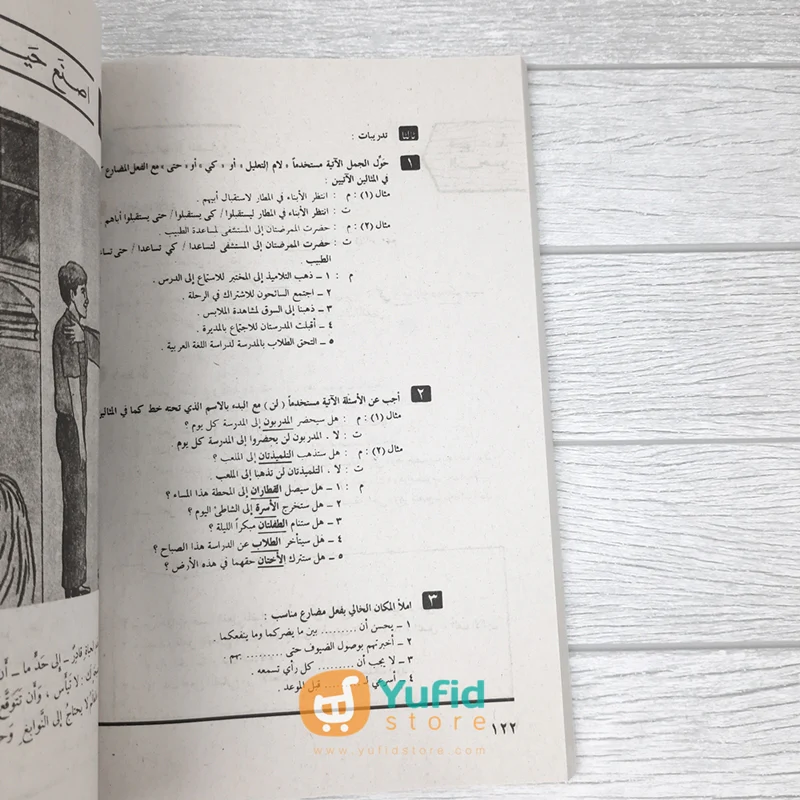 اصنع
ثانيا تدريبات :
١ حوّل الجمل الآتية مستخدماً « لام التعليل » أو « كي » أو « حتى » مع الفعل المضارع
في المثالين الآتيين :
مثال (١) : م : انتظر الأبناء في المطار لاستقبال أبيهم .
ت : انتظر الأبناء في المطار ليستقبلوا / كي يستقبلوا / حتى يستقبلوا أباهم
مثال (٢) : م : حضرت الممرضتان إلى المستشفى لمساعدة الطبيب .
ت : حضرت الممرضتان إلى المستشفى لتساعدا / كي تساعدا / حتى
الطبيب .
م : ١ ـ ذهب التلاميذ إلى المختبر للاستماع إلى الدرس .
٢ ـ اجتمع السائحون للاشتراك في الرحلة .
٣ ـ ذهبنا إلى السوق لمشاهدة الملابس .
٤ ـ أقبلت المدرستان للاجتماع بالمديرة .
٥ ـ التحق الطلاب بالمدرسة لدراسة اللغة العربية .
٢ أجب عن الأسئلة الآتية مستخدماً ( لن ) مع البدء بالاسم الذي تحته خط كما في
مثال (١) : م : هل سيحضر المدربون إلى المدرسة كل يوم ؟
ت : لا . المدربون لن يحضروا إلى المدرسة كل يوم .
مثال (٢) : م : هل ستذهب التلميذتان إلى الملعب ؟
ت : لا . التلميذتان لن تذهبا إلى الملعب .
م : ١ ـ هل سيصل القطاران إلى المحطة هذا المساء ؟
٢ ـ هل ستخرج الأسرة إلى الشاطئ اليوم ؟
٣ ـ هل ستنام الطفلتان مبكراً الليلة ؟
٤ ـ هل سيتأخر الطلاب عن الدراسة هذا الصباح ؟
٥ ـ هل ستترك الأختان حقهما في هذه الأرض ؟
٣ املأ المكان الخالي بفعل مضارع مناسب :
١ ـ يحسن أن ......... بين ما يضركما وما ينفعكما .
٢ ـ أخبرتهم بوصول الضيوف حتى ......... بهم .
٣ ـ لا يجب أن ......... كل رأي تسمعه .
٤ ـ أسرعي لـ ......... قبل الموعد .
١٢٢
قادر ـ إلى حد ما ـ
لا تيأس ، وأن تتوقع
يحتاج إلى النوابغ
Yufid
store
www.yufidstore.com